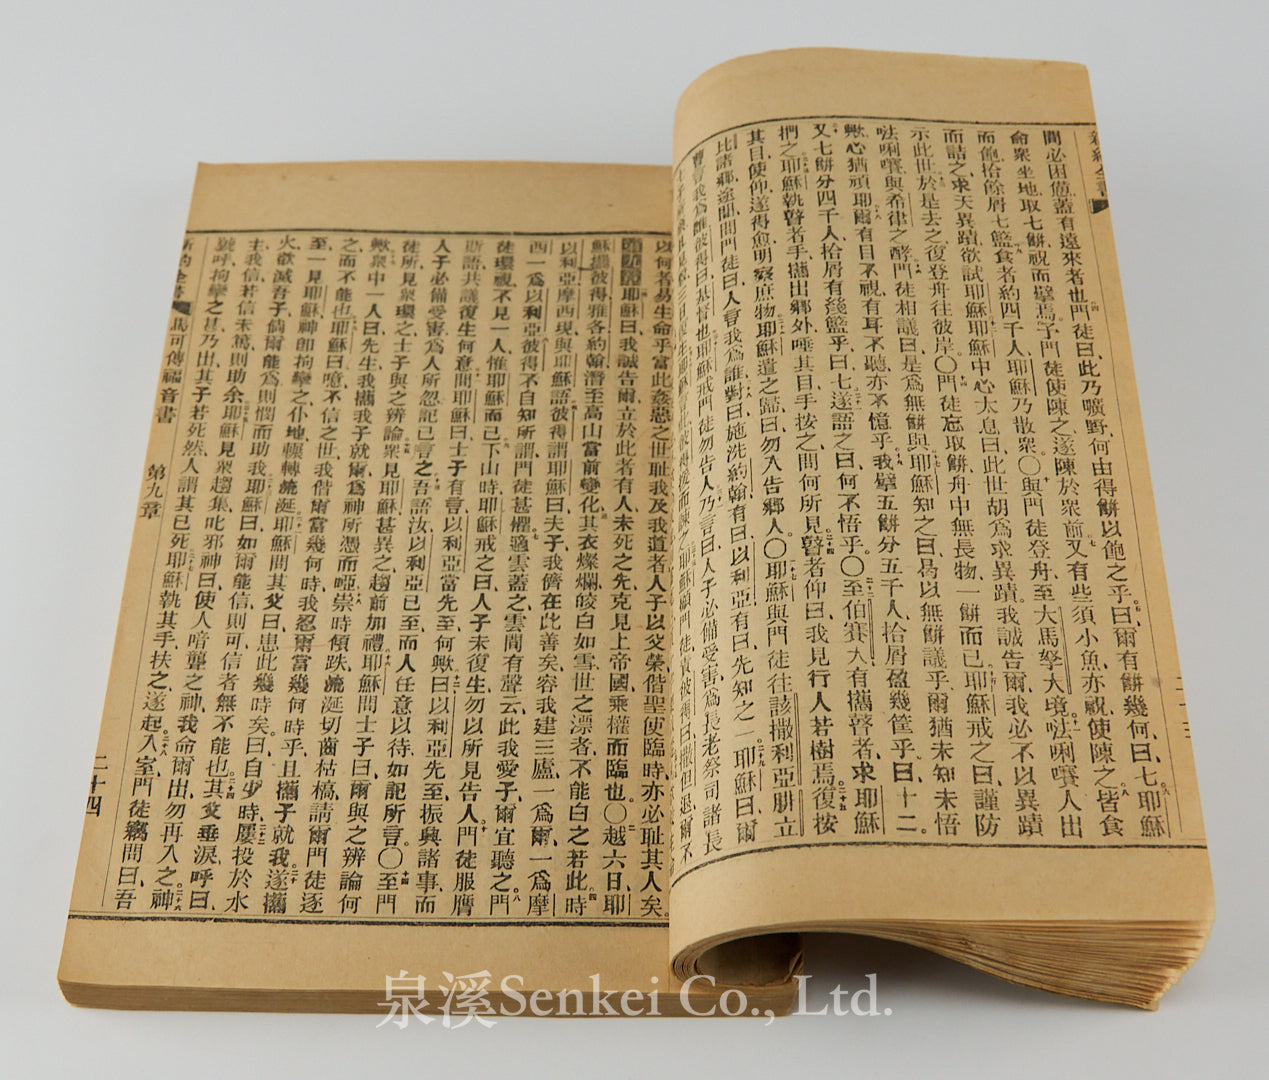 間必困憊蓋有遠來者也門徒曰此乃曠野何由得餅以飽之乎曰爾有餅幾何曰七耶穌
命衆坐地取七餅祝而擘焉予門徒使陳之遂陳於衆前又有些須小魚亦祝使陳之皆食
而飽拾餘屑七籃食者約四千人耶穌乃散衆〇與門徒登舟至大馬拏大境𠵽唎㘔人出
而詰之求天異蹟欲試耶穌耶穌中心太息曰此世胡爲求異蹟我誠告爾我必不以異蹟
示此世於是去之復登舟往彼岸〇門徒忘取餅舟中無長物一餅而已耶穌戒之曰謹防
𠵽唎㘔與希律之酵門徒相議曰是爲無餅與耶穌知之曰曷以無餅議乎爾猶未知未悟
歟心猶頑耶爾有目不視有耳不聽亦不憶乎我擘五餅分五千人拾屑盈幾筐乎曰十二
又七餅分四千人拾屑有幾籃乎曰七遂語之曰何不悟乎〇至伯賽大有攜瞽者求耶穌
捫之耶穌執瞽者手攜出鄉外唾其目手按之問何所見瞽者仰曰我見行人若樹焉復按
其目使仰遂得愈明察庶物耶穌遣之歸曰勿入告鄉人〇耶穌與門徒往該撒利亞腓立
比諸鄉途間問門徒曰人言我爲誰對曰施洗約翰有曰以利亞有曰先知之一耶穌曰爾
曹言我爲誰彼得曰基督也耶穌戒門徒勿告人乃言曰人子必備受害爲長老祭司諸長
以何者易生命乎當此姦惡之世恥我及我道者人子以父榮偕聖使臨時亦必恥其人矣
耶穌曰我誠告爾立於此者有人未死之先克見上帝國乘權而臨也〇越六日耶
穌攜彼得雅各約翰潛至高山當前變化其衣燦爛皎白如雪世之漂者不能白之若此時
以利亞摩西現與耶穌語彼得謂耶穌曰夫子我儕在此善矣容我建三廬一爲爾一爲摩
西一爲以利亞彼得不自知所謂門徒甚懼適雲蓋之雲間有聲云此我愛子爾宜聽之門
徒環視不見一人惟耶穌而已下山時耶穌戒之曰人子未復生勿以所見告人門徒服膺
斯語共議復生何意問耶穌曰士子有言以利亞當先至何歟曰以利亞先至振興諸事而
人子必備受害爲人所忽記已言之吾語汝以利亞已至而人任意以待如記所言〇至門
徒所見衆環之士子與之辨論衆見耶穌甚異之趨前加禮耶穌問士子曰爾與之辨論何
歟衆中一人曰先生我攜我子就爾爲神所憑而啞祟時傾跌流涎切齒枯槁請爾門徒逐
之而不能也耶穌曰噫不信之世我偕爾當幾何時我忍爾當幾何時乎且攜子就我遂攜
至一見耶穌神卽拘攣之仆地輾轉流涎耶穌問其父曰患此幾時矣曰自少時屢投於水
火欲滅吾子倘爾能爲則憫而助我耶穌曰如爾能信則可信者無不能也其父垂淚呼曰
主我信若信未篤則助余耶穌見衆趨集叱邪神曰使人喑聾之神我命爾出勿再入之神
號呼拘攣之甚乃出其子若死然人謂其已死耶穌執其手扶之遂起入室門徒竊問曰吾
新約全書 馬可傳福音書 第九章 二十四
泉溪Senkei Co., Ltd.